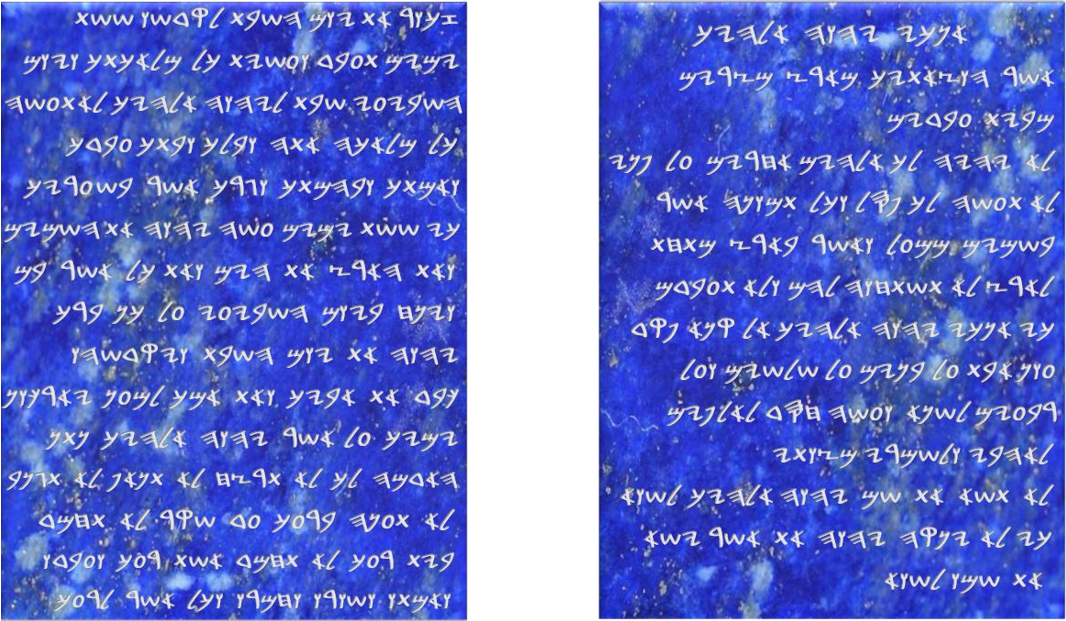 𐤀𐤍𐤊𐤉 𐤉𐤄𐤅𐤄 𐤀𐤋𐤄𐤉𐤊
𐤀𐤔𐤓 𐤄𐤅𐤑𐤀𐤕𐤉𐤊 𐤌𐤀𐤓𐤑 𐤌𐤑𐤓𐤉𐤌
𐤌𐤁𐤉𐤕 𐤏𐤁𐤃𐤉𐤌
𐤋𐤀 𐤉𐤄𐤉𐤄 𐤋𐤊 𐤀𐤋𐤄𐤉𐤌 𐤀𐤇𐤓𐤉𐤌 𐤏𐤋 𐤐𐤍𐤉
𐤋𐤀 𐤕𐤏𐤔𐤄 𐤋𐤊 𐤐𐤎𐤋 𐤅𐤊𐤋 𐤕𐤌𐤅𐤍𐤄 𐤀𐤔𐤓
𐤁𐤔𐤌𐤉𐤌 𐤌𐤌𐤏𐤋 𐤅𐤀𐤔𐤓 𐤁𐤀𐤓𐤑 𐤌𐤕𐤇𐤕
𐤋𐤀𐤓𐤑 𐤋𐤀 𐤕𐤔𐤕𐤇𐤅𐤄 𐤋𐤄𐤌 𐤅𐤋𐤀 𐤕𐤏𐤁𐤃𐤌
𐤊𐤉 𐤀𐤍𐤊𐤉 𐤉𐤄𐤅𐤄 𐤀𐤋𐤄𐤉𐤊 𐤀𐤋 𐤒𐤍𐤀 𐤐𐤒𐤃
𐤏𐤅𐤍 𐤀𐤁𐤕 𐤏𐤋 𐤁𐤍𐤉𐤌 𐤏𐤋 𐤔𐤋𐤔𐤉𐤌 𐤅𐤏𐤋
𐤓𐤁𐤏𐤉𐤌 𐤋𐤔𐤍𐤀 𐤅𐤏𐤔𐤄 𐤇𐤎𐤃 𐤋𐤀𐤋𐤐𐤉𐤌
𐤋𐤀𐤄𐤁𐤉 𐤅𐤋𐤔𐤌𐤓𐤉 𐤌𐤑𐤅𐤕𐤉
𐤋𐤀 𐤕𐤔𐤀 𐤀𐤕 𐤔𐤌 𐤉𐤄𐤅𐤄 𐤀𐤋𐤄𐤉𐤊 𐤋𐤔𐤅𐤀
𐤊𐤉 𐤋𐤀 𐤉𐤍𐤒𐤄 𐤉𐤄𐤅𐤄 𐤀𐤕 𐤀𐤔𐤓 𐤉𐤔𐤀
𐤀𐤕 𐤔𐤌𐤅 𐤋𐤔𐤅𐤀
𐤆𐤊𐤅𐤓 𐤀𐤕 𐤉𐤅𐤌 𐤄𐤔𐤁𐤕 𐤋𐤒𐤃𐤔𐤅 𐤔𐤔𐤕
𐤉𐤌𐤉𐤌 𐤕𐤏𐤁𐤃 𐤅𐤏𐤔𐤉𐤕 𐤊𐤋 𐤌𐤋𐤀𐤊𐤕𐤊 𐤅𐤉𐤅𐤌
𐤄𐤔𐤁𐤉𐤏𐤉 𐤔𐤁𐤕 𐤋𐤉𐤄𐤅𐤄 𐤀𐤋𐤄𐤉𐤊 𐤋𐤀 𐤕𐤏𐤔𐤄
𐤊𐤋 𐤌𐤋𐤀𐤊𐤄 𐤀𐤕𐤄 𐤅𐤁𐤍𐤊 𐤅𐤁𐤕𐤊 𐤏𐤁𐤃𐤊
𐤅𐤀𐤌𐤕𐤊 𐤅𐤁𐤄𐤌𐤕𐤊 𐤅𐤂𐤓𐤊 𐤀𐤔𐤓 𐤁𐤔𐤏𐤓𐤉𐤊
𐤊𐤉 𐤔𐤔𐤕 𐤉𐤌𐤉𐤌 𐤏𐤔𐤄 𐤉𐤄𐤅𐤄 𐤀𐤕 𐤄𐤔𐤌𐤉𐤌
𐤅𐤀𐤕 𐤄𐤀𐤓𐤑 𐤀𐤕 𐤄𐤉𐤌 𐤅𐤀𐤕 𐤊𐤋 𐤀𐤔𐤓 𐤁𐤌
𐤅𐤉𐤍𐤇 𐤁𐤉𐤅𐤌 𐤄𐤔𐤁𐤉𐤏𐤉 𐤏𐤋 𐤊𐤍 𐤁𐤓𐤊
𐤉𐤄𐤅𐤄 𐤀𐤕 𐤉𐤅𐤌 𐤄𐤔𐤁𐤕 𐤅𐤉𐤒𐤃𐤔𐤄𐤅
𐤊𐤁𐤃 𐤀𐤕 𐤀𐤁𐤉𐤊 𐤅𐤀𐤕 𐤀𐤌𐤊 𐤋𐤌𐤏𐤍 𐤉𐤀𐤓𐤊𐤅𐤍
𐤉𐤌𐤉𐤊 𐤏𐤋 𐤀𐤔𐤓 𐤉𐤄𐤅𐤄 𐤀𐤋𐤄𐤉𐤊 𐤍𐤕𐤍
𐤄𐤀𐤃𐤌𐤄 𐤋𐤊 𐤋𐤀 𐤕𐤓𐤑𐤇 𐤋𐤀 𐤕𐤍𐤀𐤐 𐤋𐤀 𐤕𐤂𐤍𐤁
𐤋𐤀 𐤕𐤏𐤍𐤄 𐤁𐤓𐤏𐤊 𐤏𐤃 𐤔𐤒𐤓 𐤋𐤀 𐤕𐤇𐤌𐤃
𐤁𐤉𐤕 𐤓𐤏𐤊 𐤋𐤀 𐤕𐤇𐤌𐤃 𐤀𐤔𐤕 𐤓𐤏𐤊 𐤅𐤏𐤁𐤃𐤅
𐤅𐤀𐤌𐤕𐤅 𐤅𐤔𐤅𐤓𐤅 𐤅𐤇𐤌𐤓𐤅 𐤅𐤊𐤋 𐤀𐤔𐤓 𐤋𐤓𐤏𐤊